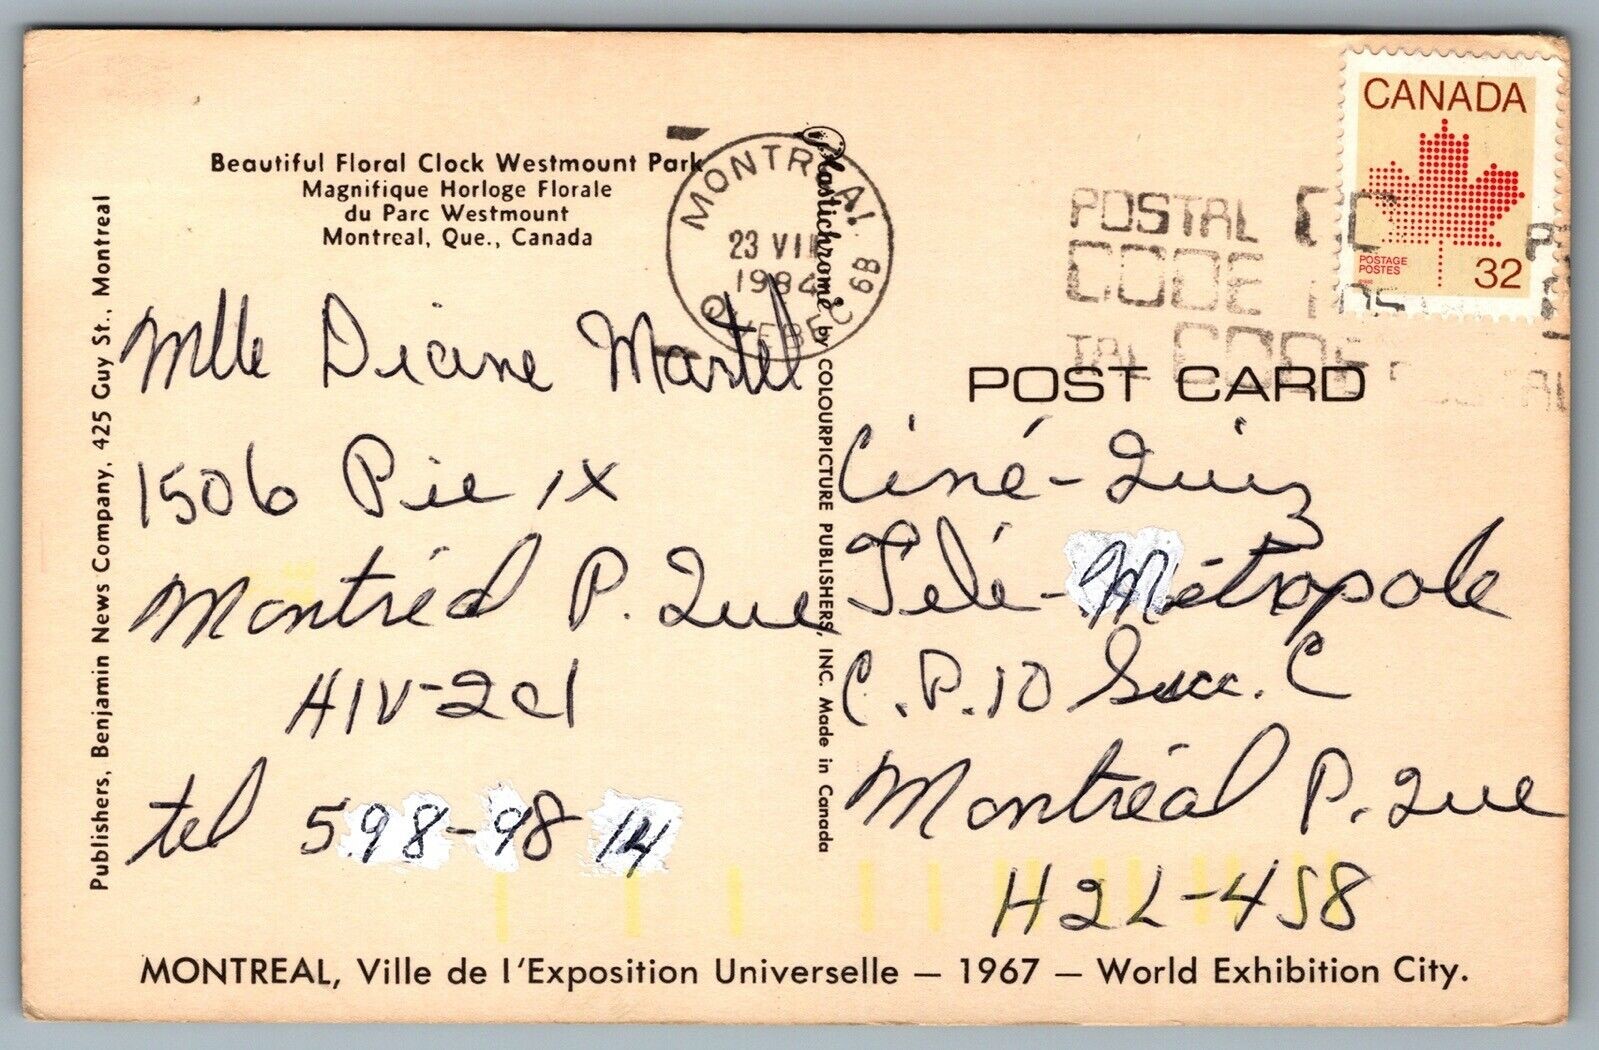 Beautiful Floral Clock Westmount Park
Magnifique Horloge Florale
du Parc Westmount
Montreal, Que., Canada
Publishers, Benjamin News Company, 425 Guy St., Montreal
Mlle Diane Martel
1506 Pie IX
Montréal P. Que
H1V-2C1
tel 598-98-14
MONTREAL
23 VII
1984
6B
QUEBEC
Plastichrome by COLOURPICTURE PUBLISHERS, INC. Made in Canada
POSTAL
CODE
CODE
CANADA
POSTAGE
POSTES
32
POST CARD
Ciné-Quiz
Télé-Métropole
C.P. 10 Succ. C
Montréal P. Que
H2L-4S8
MONTREAL, Ville de l'Exposition Universelle — 1967 — World Exhibition City.